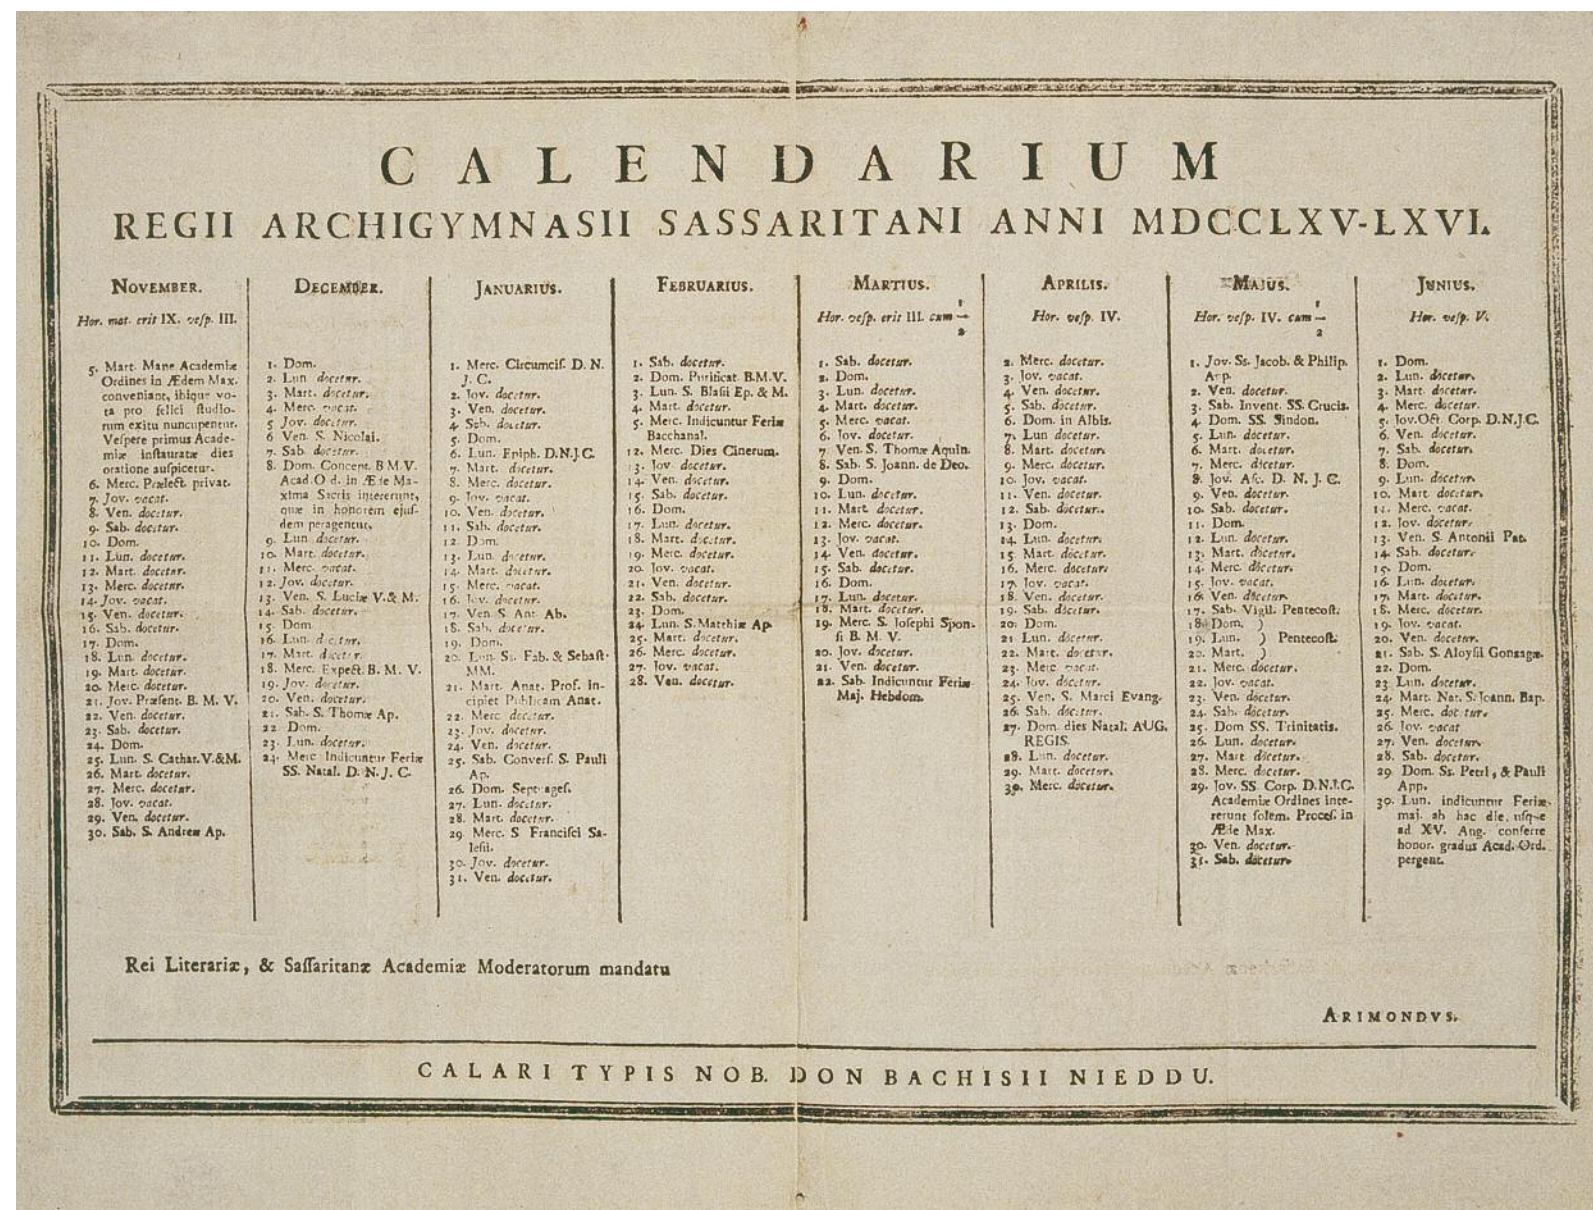 CALENDARIUM
REGII ARCHIGYMNASII SASSARITANI ANNI MDCCLXV-LXVI.
NOVEMBER.
Hor. mat. erit IX. vesp. III.
5. Mart. Mane Academiæ
Ordines in Ædem Max.
conveniant, ibique vo-
ta pro felici studio-
rum exitu nuncupentur.
Vespere primus Acade-
miæ instauratæ dies
oratione auspicetur.
6. Merc. Prælect. privat.
7. Jov. vacat.
8. Ven. docetur.
9. Sab. docetur.
10. Dom.
11. Lun. docetur.
12. Mart. docetur.
13. Merc. docetur.
14. Jov. vacat.
15. Ven. docetur.
16. Sab. docetur.
17. Dom.
18. Lun. docetur.
19. Mart. docetur.
20. Merc. docetur.
21. Jov. Præsent. B. M. V.
22. Ven. docetur.
23. Sab. docetur.
24. Dom.
25. Lun. S. Cathar. V.&M.
26. Mart. docetur.
27. Merc. docetur.
28. Jov. vacat.
29. Ven. docetur.
30. Sab. S. Andreæ Ap.
DECEMBER.
1. Dom.
2. Lun docetur.
3. Mart. docetur.
4. Merc. vacat.
5 Jov. docetur.
6 Ven. S. Nicolai.
7. Sab. docetur.
8. Dom. Concept. B M.V.
Acad. O d. in Æde Ma-
xima Sacris intererunt,
quæ in honorem ejus-
dem peragentur.
9. Lun docetur.
10. Mart. docetur.
11. Merc. vacat.
12. Jov. docetur.
13. Ven. S. Luciæ V.& M.
14. Sab. docetur.
15. Dom
16. Lun. docetur.
17. Mart. docetur.
18. Merc. Expect. B. M. V.
19. Jov. docetur.
20. Ven. docetur.
21. Sab. S. Thomæ Ap.
22. Dom.
23. Lun. docetur.
24. Merc Indicuntur Feriæ
SS. Natal. D. N. J. C.
JANUARIUS.
1. Merc. Circumcis. D. N.
J. C.
2. Jov. docetur.
3. Ven. docetur.
4. Sab. docetur.
5. Dom.
6. Lun. Epiph. D.N.J.C.
7. Mart. docetur.
8. Merc. docetur.
9. Jov. vacat.
10. Ven. docetur.
11. Sab. docetur.
12. Dom.
13. Lun. docetur.
14. Mart. docetur.
15. Merc. vacat.
16. Jov. docetur.
17. Ven. S. Ant. Ab.
18. Sab. docetur.
19. Dom.
20. Lun. Ss. Fab. & Sebast.
MM.
21. Mart. Anat. Prof. in-
cipiet Publicam Anat.
22. Merc docetur.
23. Jov. docetur.
24. Ven. docetur.
25. Sab. Convers. S. Pauli
Ap.
26. Dom. Septuages.
27. Lun. docetur.
28. Mart. docetur.
29 Merc. S Francisci Sa-
lesii.
30. Jov. docetur.
31. Ven. docetur.
FEBRUARIUS.
1. Sab. docetur.
2. Dom. Purificat. B.M.V.
3. Lun. S. Blasii Ep. & M.
4. Mart. docetur.
5. Merc. Indicuntur Feriæ
Bacchanal.
12. Merc. Dies Cinerum.
13. Jov docetur.
14. Ven. docetur.
15. Sab. docetur.
16. Dom.
17. Lun. docetur.
18. Mart. docetur.
19. Merc. docetur.
20. Jov. vacat.
21. Ven. docetur.
22. Sab. docetur.
23. Dom.
24. Lun. S. Matthiæ Ap.
25. Mart. docetur.
26. Merc. docetur.
27. Jov. vacat.
28. Ven. docetur.
MARTIUS.
Hor. vesp. erit III. cum 1/2
1. Sab. docetur.
2. Dom.
3. Lun. docetur.
4. Mart. docetur.
5. Merc. vacat.
6. Jov. docetur.
7. Ven. S. Thomæ Aquin.
8. Sab. S. Joann. de Deo.
9. Dom.
10. Lun. docetur.
11. Mart docetur.
12. Merc. docetur.
13. Jov. vacat.
14. Ven. docetur.
15. Sab. docetur.
16. Dom.
17. Lun. docetur.
18. Mart. docetur.
19. Merc. S. Josephi Spon-
si B. M. V.
20. Jov. docetur.
21. Ven. docetur.
22. Sab. Indicuntur Feriæ
Maj. Hebdom.
APRILIS.
Hor. vesp. IV.
2. Merc. docetur.
3. Jov. vacat.
4. Ven. docetur.
5. Sab. docetur.
6. Dom. in Albis.
7. Lun docetur.
8. Mart. docetur.
9. Merc. docetur.
10. Jov. vacat.
11. Ven. docetur.
12. Sab. docetur.
13. Dom.
14. Lun. docetur.
15. Mart. docetur.
16. Merc. docetur.
17. Jov. vacat.
18. Ven. docetur.
19. Sab. docetur.
20. Dom.
21 Lun. docetur.
22. Mart. docetur.
23. Merc vacat.
24. Jov. docetur.
25. Ven. S. Marci Evang.
26. Sab. docetur.
27. Dom. dies Natal. AUG.
REGIS.
28. Lun. docetur.
29. Mart. docetur.
30. Merc. docetur.
MAJUS.
Hor. vesp. IV. cum 1/2
1. Jov. Ss. Jacob. & Philip.
App.
2. Ven. docetur.
3. Sab. Invent. SS. Crucis.
4. Dom. SS. Sindon.
5. Lun. docetur.
6. Mart. docetur.
7. Merc. docetur.
8. Jov. Asc. D. N. J. C.
9. Ven. docetur.
10. Sab. docetur.
11. Dom.
12. Lun. docetur.
13. Mart. docetur.
14. Merc. docetur.
15. Jov. vacat.
16. Ven. docetur.
17. Sab. Vigil. Pentecost.
18. Dom. )
19. Lun. ) Pentecost.
20. Mart. )
21. Merc. docetur.
22. Jov. vacat.
23. Ven. docetur.
24. Sab. docetur.
25. Dom SS. Trinitatis.
26. Lun. docetur.
27. Mart. docetur.
28. Merc. docetur.
29. Jov. SS. Corp. D.N.J.C.
Academiæ Ordines inte-
rerunt solem. Proces. in
Æde Max.
30. Ven. docetur.
31. Sab. docetur.
JUNIUS.
Hor. vesp. V.
1. Dom.
2. Lun. docetur.
3. Mart. docetur.
4. Merc. docetur.
5. Jov. Oct. Corp. D.N.J.C.
6. Ven. docetur.
7. Sab. docetur.
8. Dom.
9. Lun. docetur.
10. Mart. docetur.
11. Merc. vacat.
12. Jov. docetur.
13. Ven. S. Antonii Pat.
14. Sab. docetur.
15. Dom.
16. Lun. docetur.
17. Mart. docetur.
18. Merc. docetur.
19. Jov. vacat.
20. Ven. docetur.
21. Sab. S. Aloysii Gonzagæ.
22. Dom.
23 Lun. docetur.
24. Mart. Nat. S. Joann. Bap.
25. Merc. docetur.
26. Jov. vacat
27. Ven. docetur.
28. Sab. docetur.
29 Dom. Ss. Petri, & Pauli
App.
30. Lun. indicuntur Feriæ
maj. ab hac die usque
ad XV. Aug. conferre
honor. gradus Acad. Ord.
pergent.
Rei Literariæ, & Sassaritanæ Academiæ Moderatorum mandatu
ARIMONDVS.
CALARI TYPIS NOB. DON BACHISII NIEDDU.